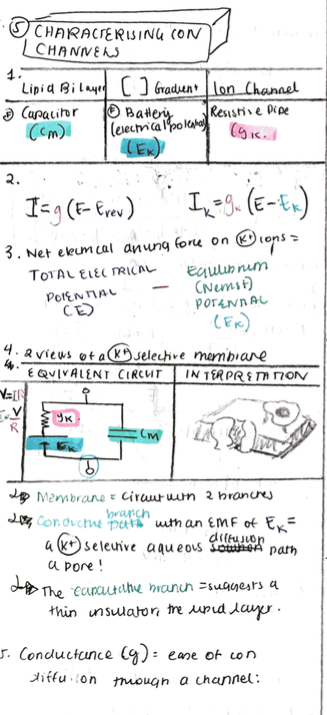 ⑤ CHARACTERISING ION
CHANNELS
1.
Lipid Bilayer [ ] Gradient Ion Channel
Capacitor
(Cm)
Battery
(electrical potential)
(EK)
Resistive Pipe
(gK.
2.
I=g(E-Erev) IK=gK(E-EK)
3. Net electrical driving force on K+ ions =
TOTAL ELECTRICAL
POTENTIAL
(E)
—
Equilibrium
(Nernst)
POTENTIAL
(EK)
4. 2 views of a K+ selective membrane
EQUIVALENT CIRCUIT INTERPRETATION
V=IR
I=V/R
gK
EK
Cm
Membrane = Circuit with 2 branches
Conductive branch path with an EMF of EK =
a K+ selective aqueous diffusion path
a pore!
The capacitative branch = suggests a
thin insulator, the lipid layer.
5. Conductance (g) = ease of ion
diffusion through a channel: